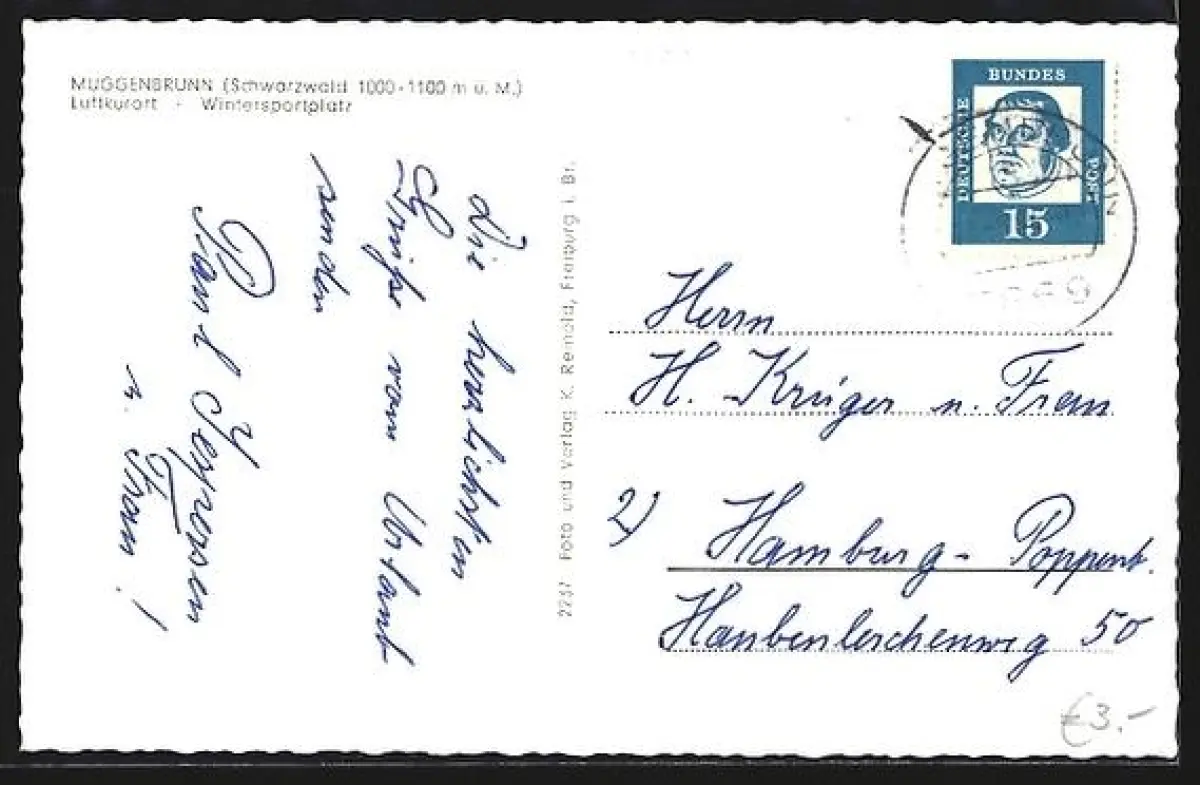 MUGGENBRUNN (Schwarzwald 1000-1100 m ü. M.)
Luftkurort - Wintersportplatz
Die herzlichsten
Grüße vom Urlaub
senden
Paul
u. Frau!
2237 Foto und Verlag K. Reinold, Freiburg i. Br.
DEUTSCHE BUNDES POST
15
Herrn
H. Krüger u. Frau
2) Hamburg- Poppenb.
Haubenlerchenweg 50
€3.-